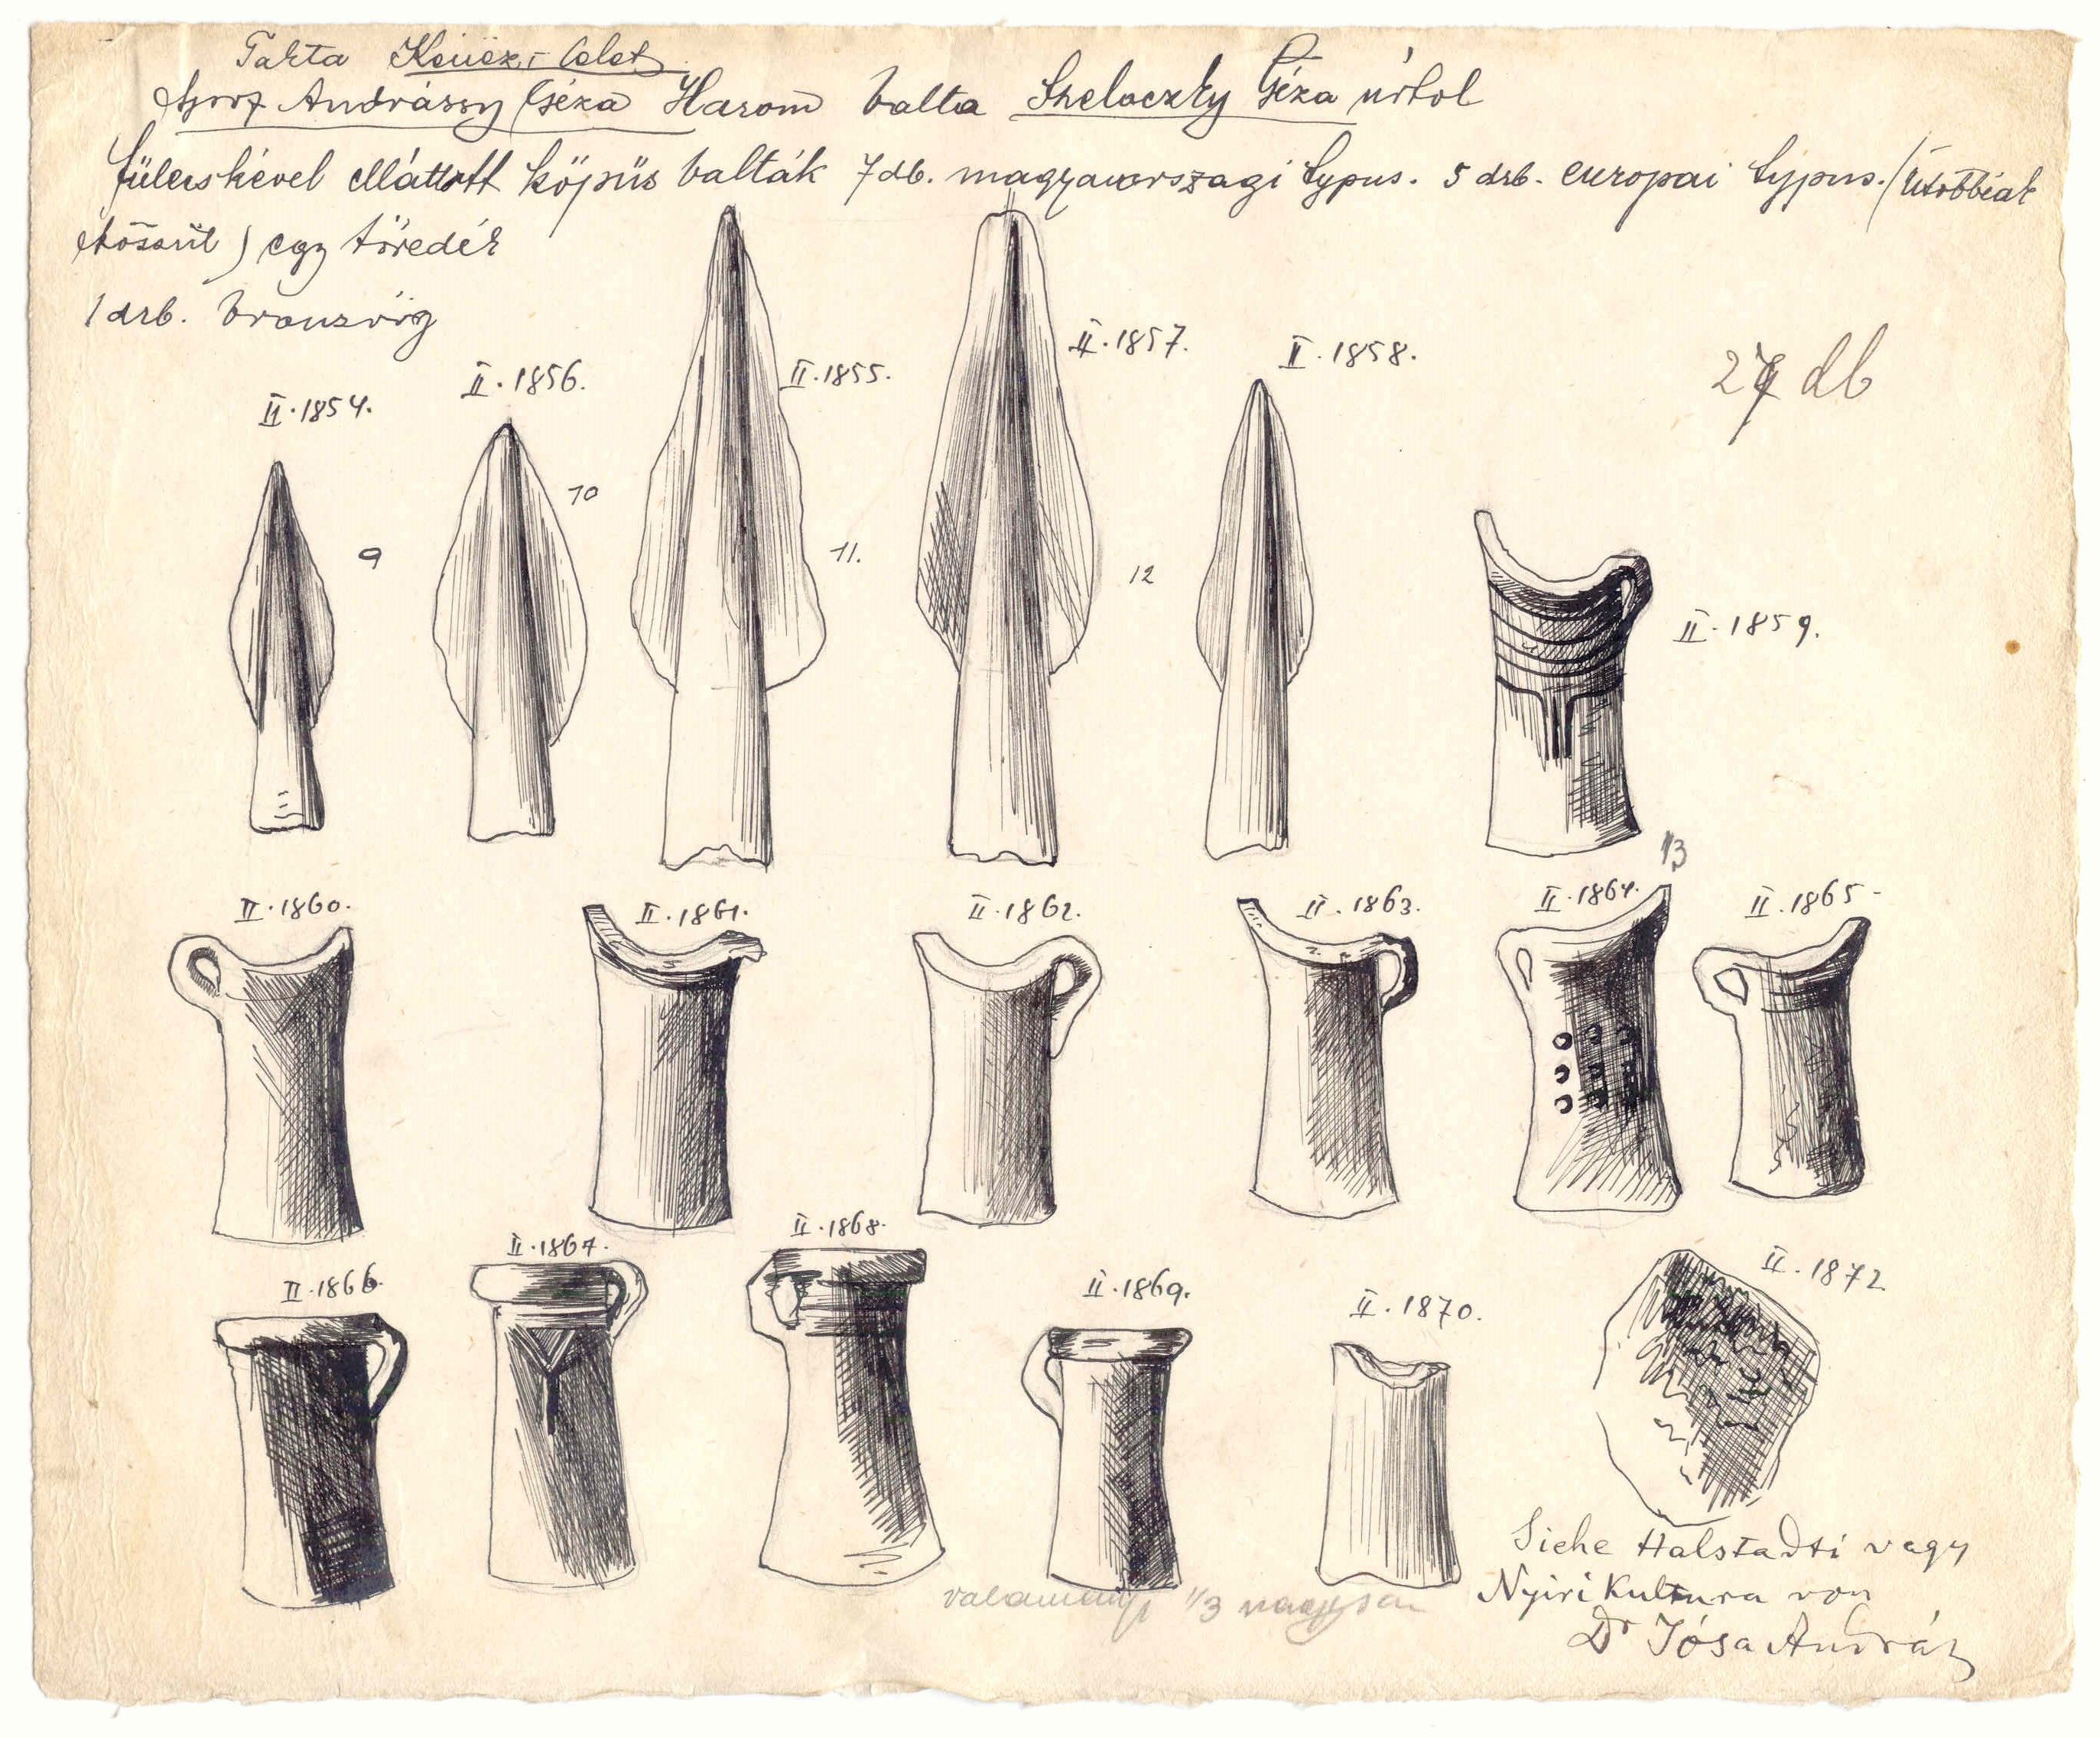 Takta Kenéz-i lelet
gróf Andrássy Géza Harom balta Szeloczky Géza úrtol
fülecskével ellátott köpüs balták 7 db. magyarorszagi typus. 5 drb. europai typus. (Utóbbiak
) egy töredék
1 drb. bronzrög
II. 1857.
II. 1858.
II. 1856.
II. 1855.
II. 1854.
27 db
10
9
11.
12
II. 1859.
13
II. 1860.
II. 1861.
II. 1862.
II. 1863.
II. 1864.
II. 1865
II. 1866
II. 1867.
II. 1868.
II. 1869.
II. 1870.
II. 1872
valamenyi 1/3 nagysan
Siehe Halstadti vagy
Nyiri Kultura von
Dr Jósa András